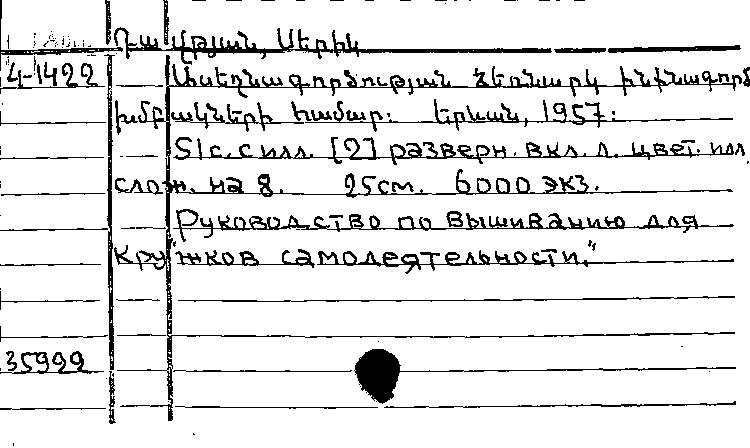 Դավթյան, Սերիկ
4-1422 Ասեղնագործության ձեռնարկ ինքնագործ
խմբակների համար: Երևան, 1957:
51с. с илл. [2] разверн. вкл. л. цвет. илл
слож. на 8. 25см. 6000 экз.
"Руководство по вышиванию для
кружков самодеятельности."
35999